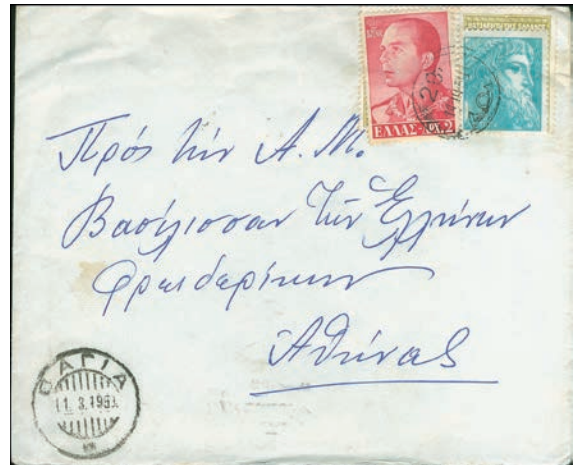 ΕΛΛΑΣ-ΔΡ.2
Πρός τήν Α. Μ.
Βασίλισσαν τῶν Ἑλλήνων
Φρειδερίκην
Ἀθήνας
ΑΓΙΑ
11.3.196